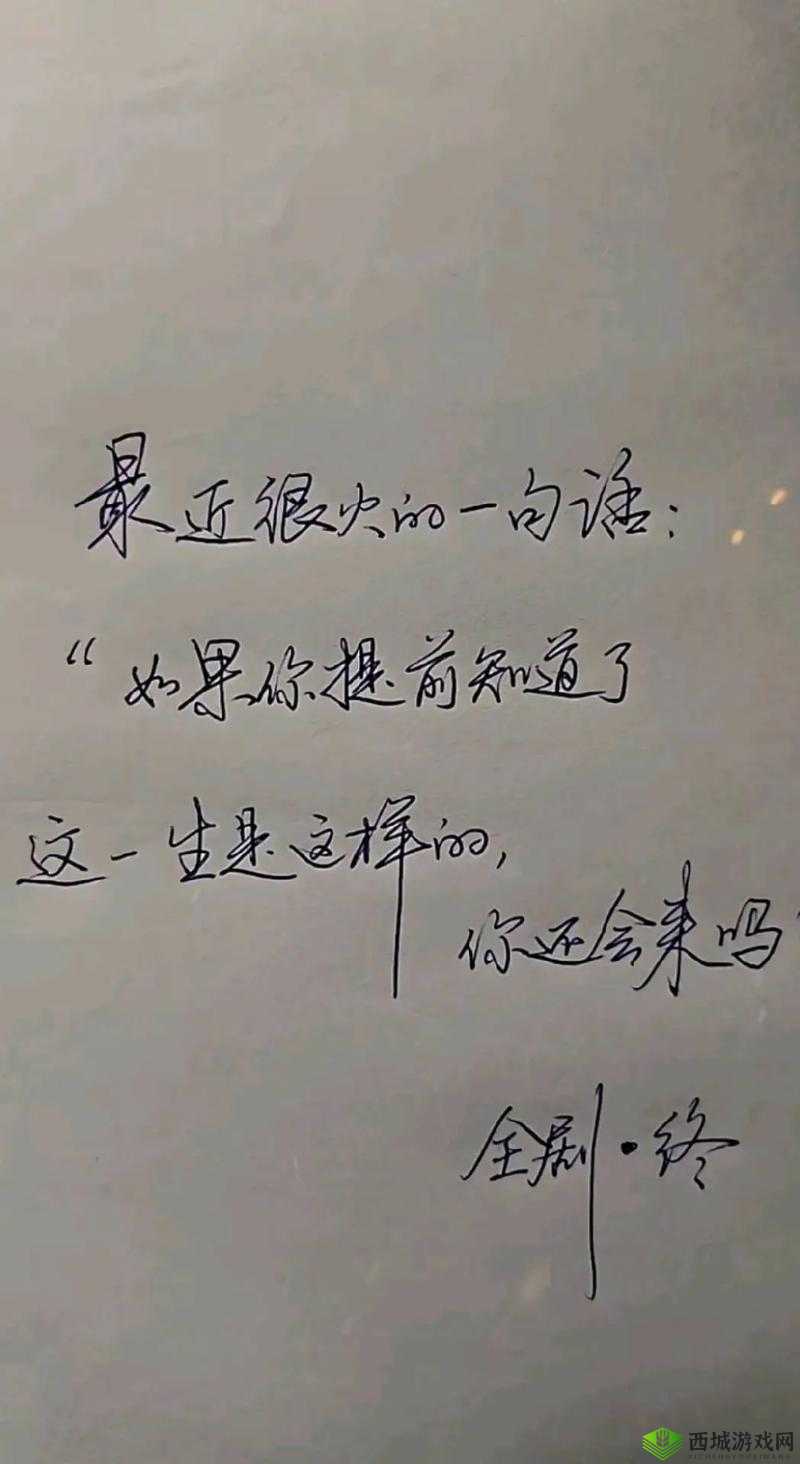 最近很火的一句话:
“如果你提前知道了
这一生是这样的,
你还会来吗
全剧·终
西城游戏网
XICHENGYOUXIWANG